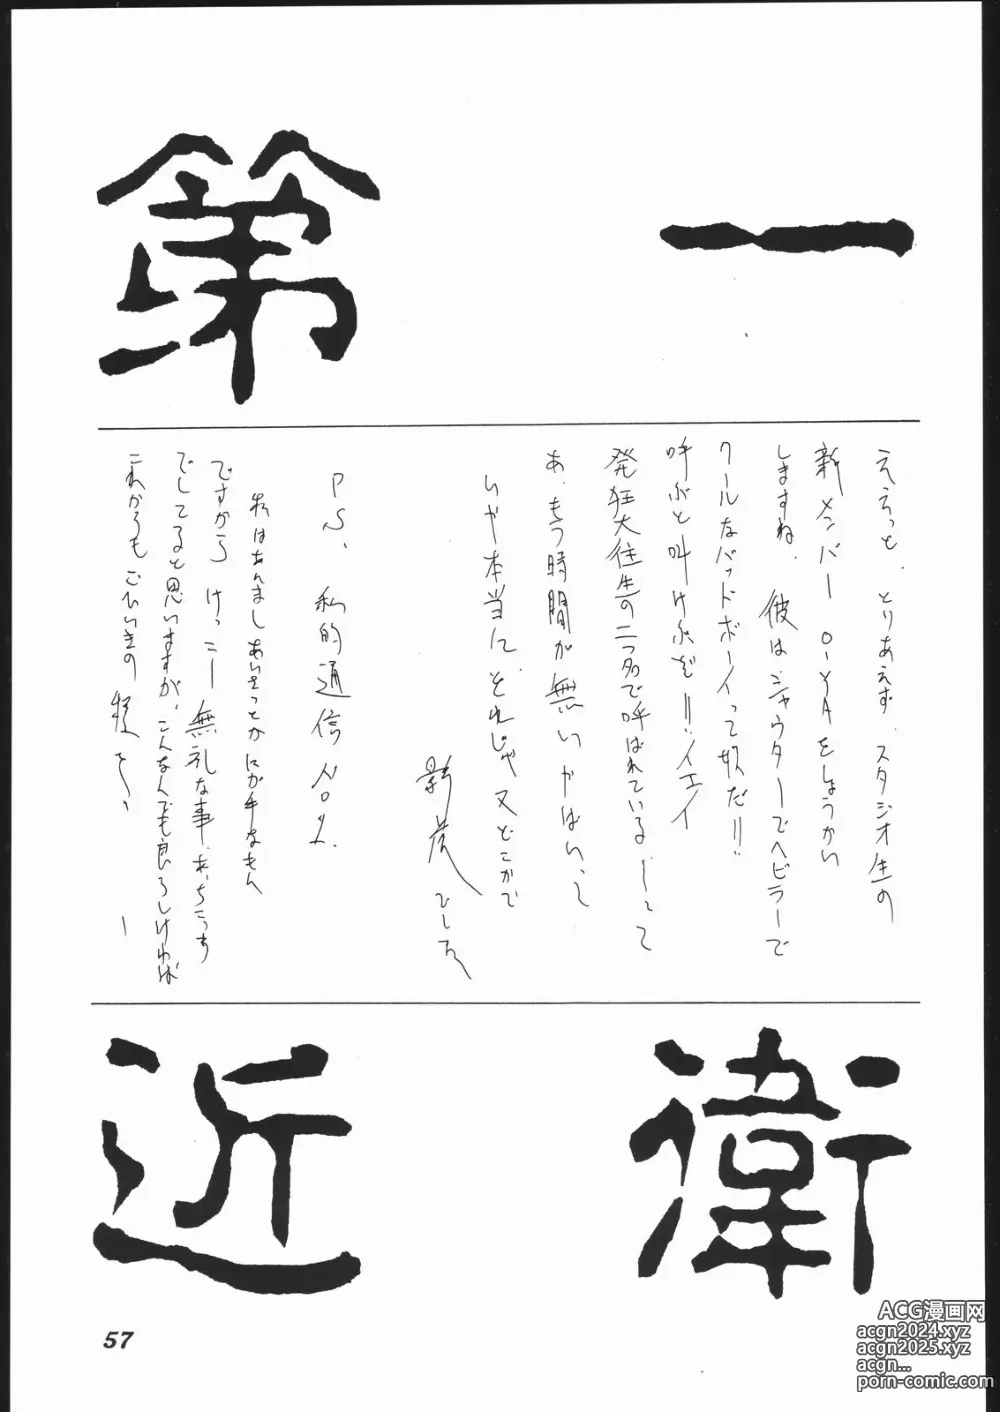 第一
ええっと、とりあえず、スタジオ生の
新メンバー O-YAをしょうかい
しますね、彼はシャウターでヘビラーで
クールなバッドボーイって奴だ!!
呼ぶと叫けぶぞ!!イエイ
発狂大往生の二つ名で呼ばれている
あ、もう時間が無いがはいって
いや本当に、それじゃ又どこかで
P.S、私的通信
私はあんましあいさつとかにが手なもん
ですから けっこー無礼な事、あっちこっち
でしてると思いますが、こんなんでも良ろしければ
これからもごひいきの程を
近衛
57
ACG漫画网
acgn2024.xyz
acgn2025.xyz
acgn...
porn-comic.com